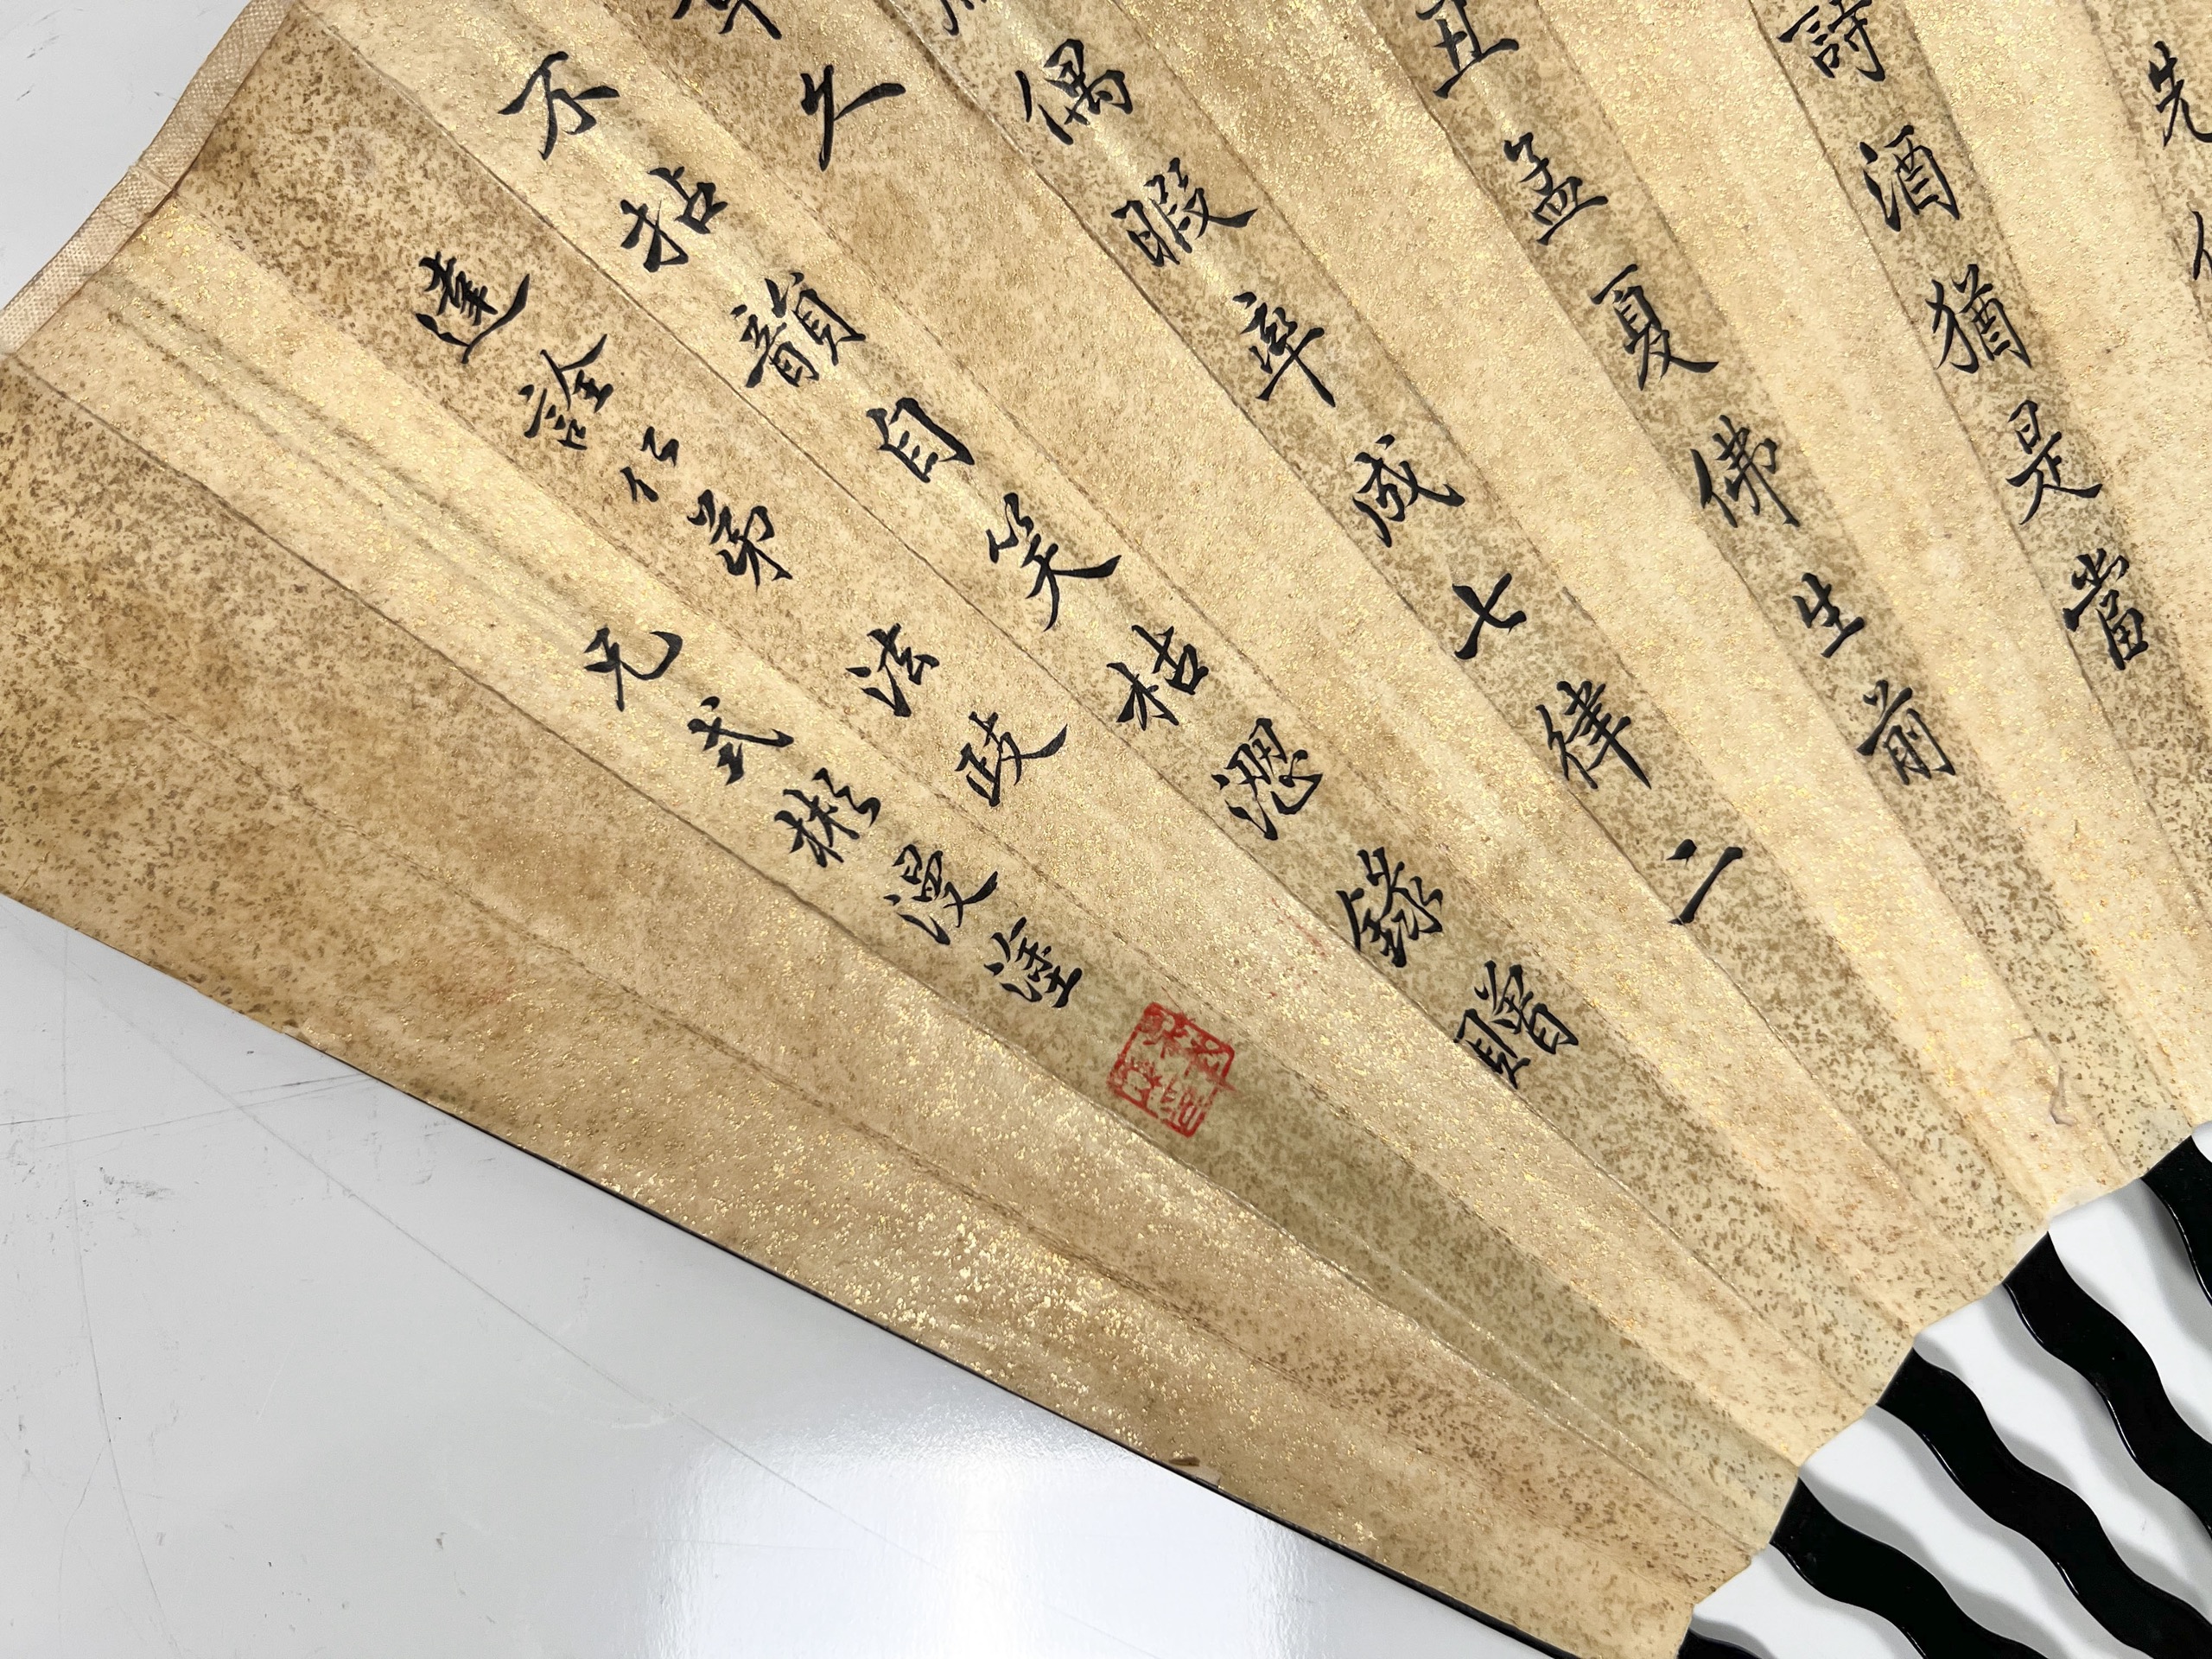 先
詩酒猶是當
丑孟夏佛生前
偶暇率成七律二
久
不拈韻自笑枯澀錄贈
達詮仁弟法政
兄式彬漫塗